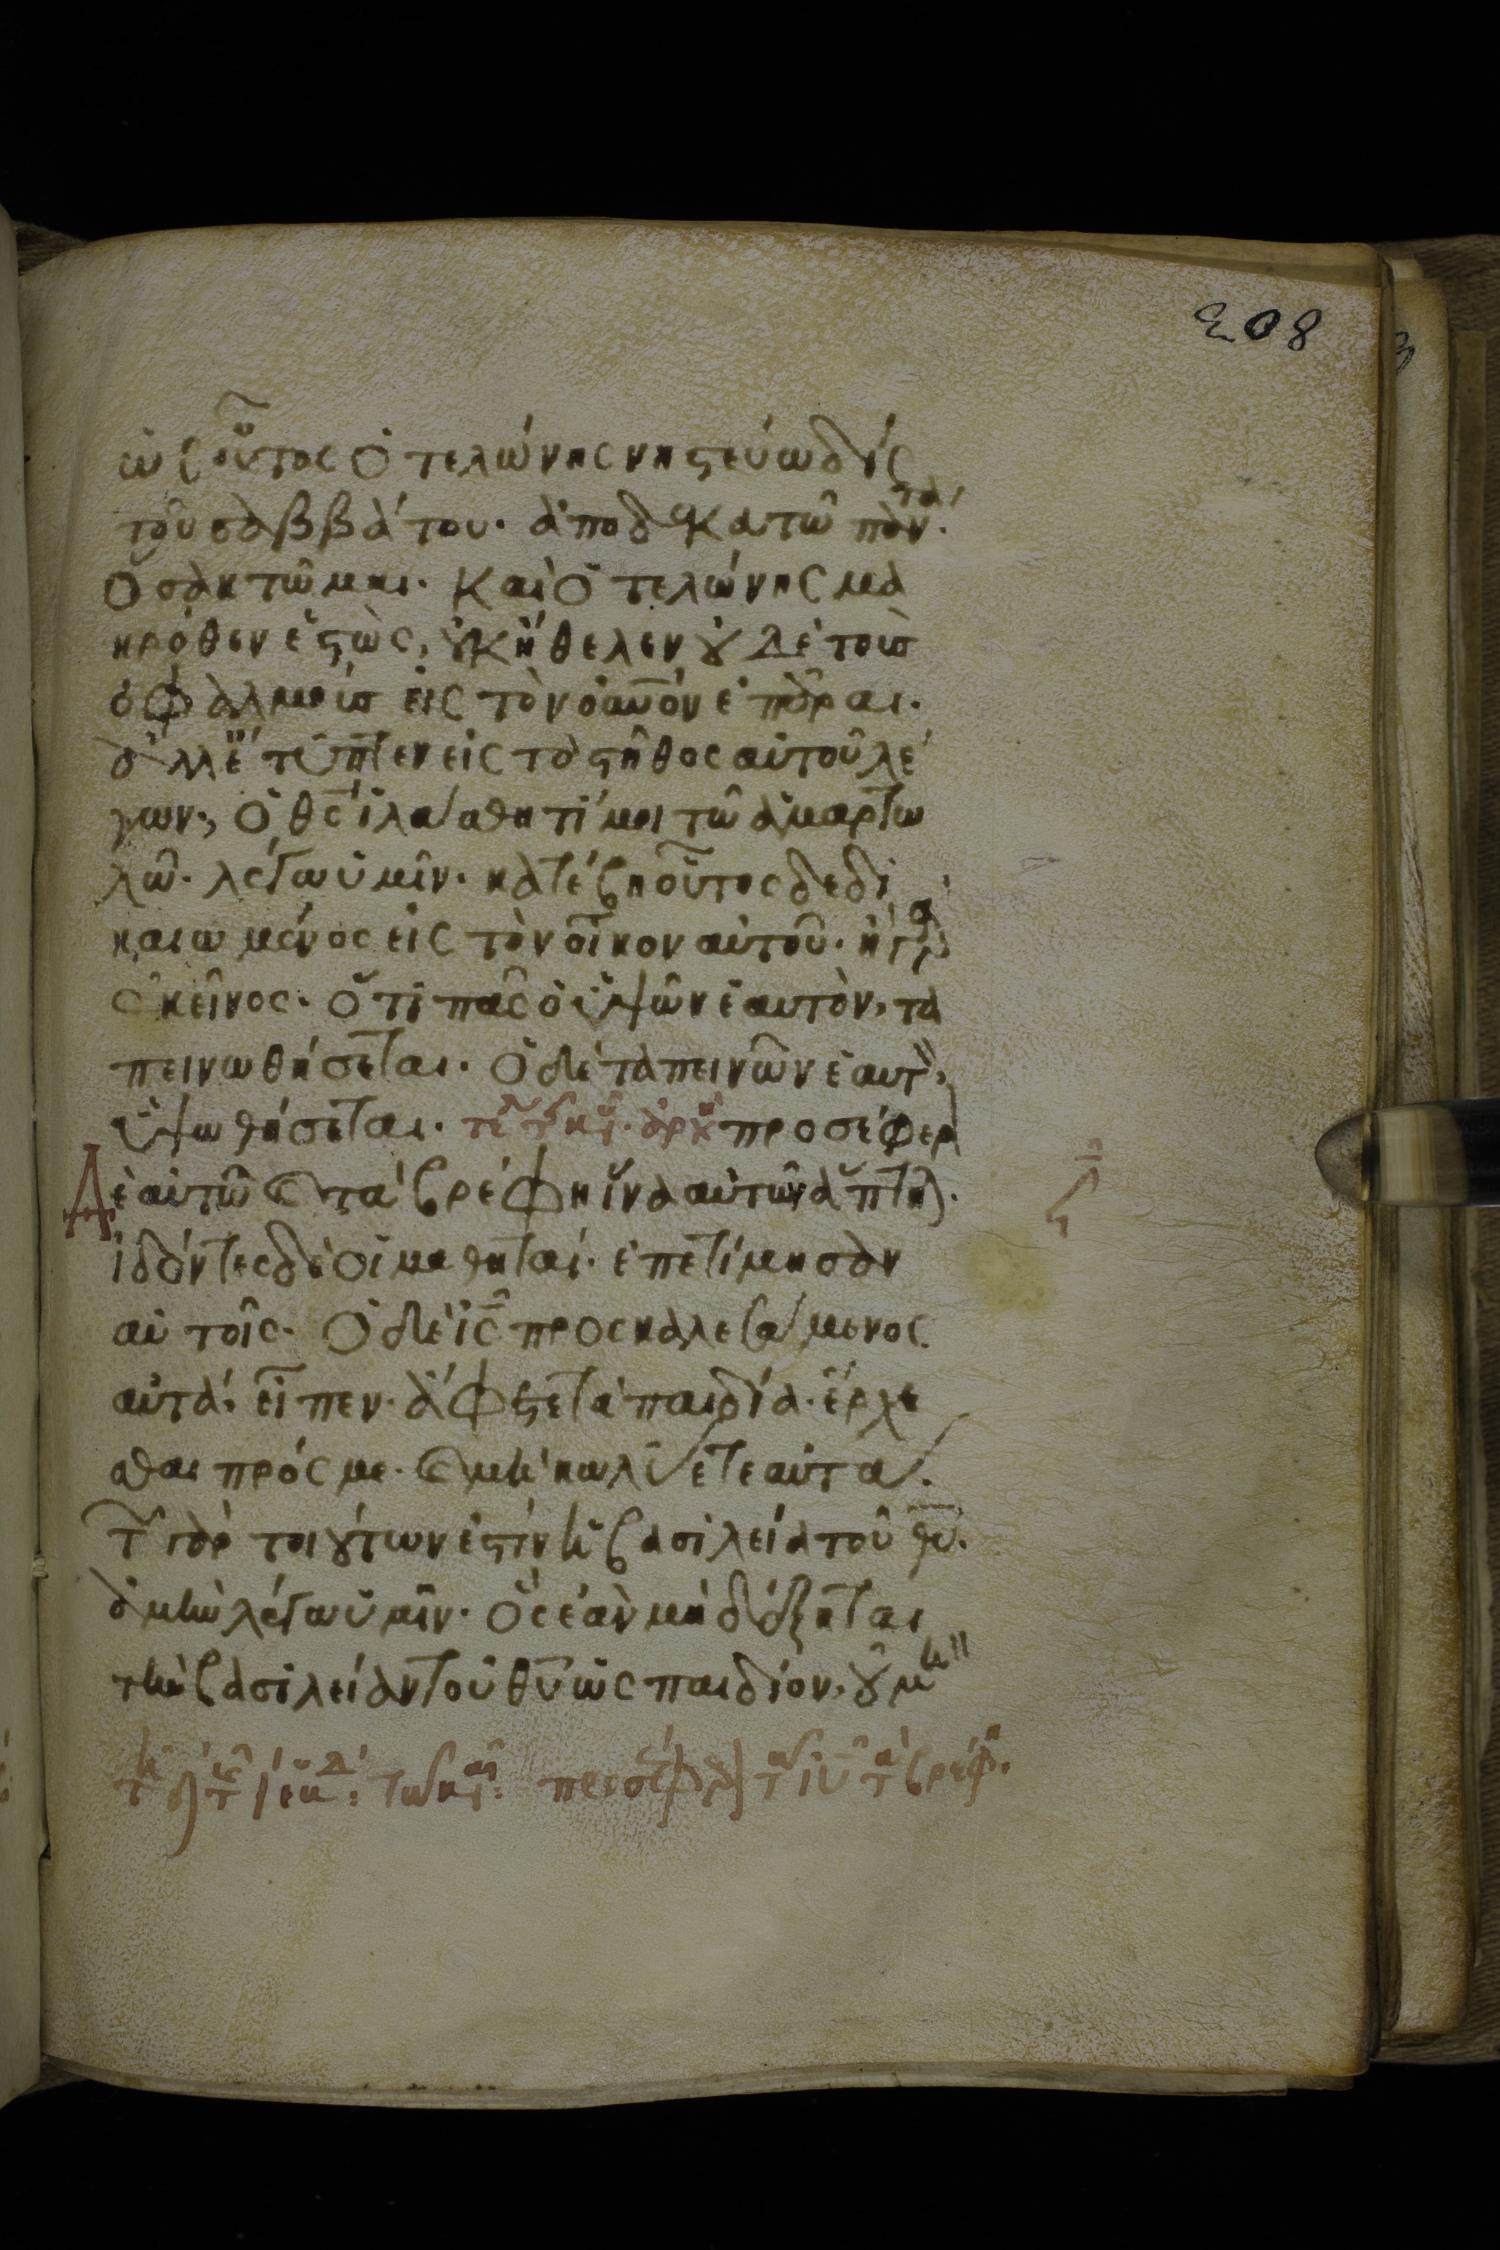 208
ὡς οὗτος ὁ τελώνης νηστεύω δὶς
τοῦ σαββάτου. ἀποδεκατῶ πάντα.
ὅσα κτῶμαι. Καὶ ὁ τελώνης μα
κρόθεν ἑστὼς, οὐκ ἤθελεν οὐδὲ τοὺσ
ὀφθαλμοὺσ εἰς τὸν οὐνὸν ἐπᾶραι.
ἀλλ' ἔτυπτεν εἰς τὸ στῆθος αὐτοῦ λέ
γων, ὁ θς ἱλάσθητί μοι τῶ ἁμαρτω
λῶ. λέγω ὑμῖν. κατέβη οὗτος δεδι
καιωμένος εἰς τὸν οἶκον αὐτοῦ. ἢ γὰρ
ἐκεῖνος. ὅτι πᾶς ὁ ὑψῶν ἑαυτὸν, τα
πεινωθήσεται. ὁ δὲ ταπεινῶν ἑαυτὸν,
ὑψωθήσεται. προσέφερ
ε αὐτῶ καὶ τὰ βρέφη ἵνα αὐτῶν ἅπτηται.
ἰδόντες δὲ οἱ μαθηταί. ἐπετίμησαν
αὐτοῖς. ὁ δὲ ις προσκαλεσάμενος
αὐτά, εἶπεν. ἄφετε τὰ παιδία. ἔρχε
σθαι πρός με. καὶ μὴ κωλύετε αὐτά.
τῶν γὰρ τοιούτων ἐστὶν ἡ βασιλεία τοῦ θυ.
ἀμὴν λέγω ὑμῖν. ὃς ἐὰν μὴ δέξηται
τὴν βασιλείαν τοῦ θυ ὡς παιδίον, οὐ μὴ